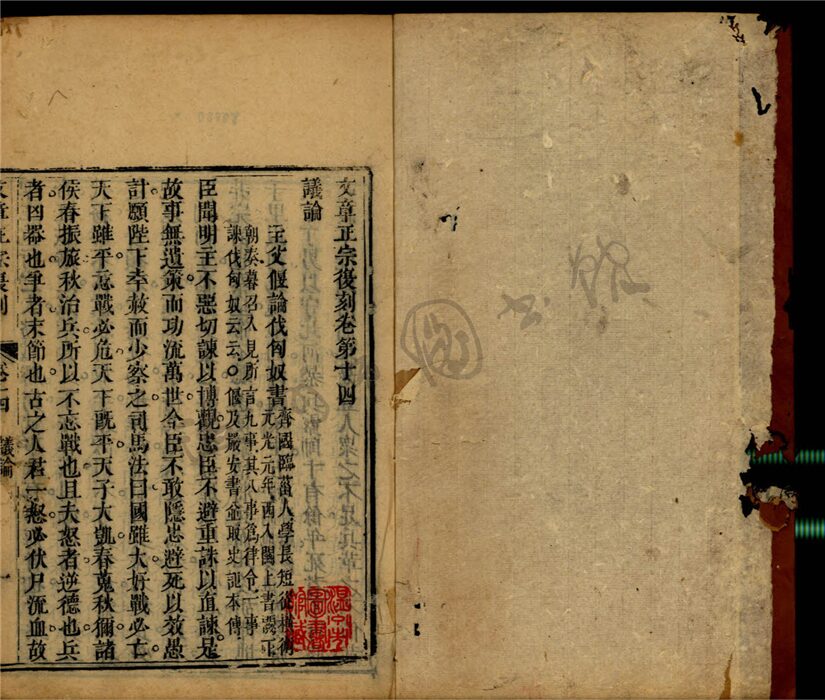 文章正宗復刻卷第十四
議論
主父偃論伐匈奴書
齊國臨菑人學長短從橫術
元光元年西入關上書闕下
朝奏暮召入見所言九事其八事爲律令一事
諫伐匈奴云云○偃及嚴安書並取史記本傳
臣聞明主不惡切諫以博觀忠臣不避重誅以直諫是
故事無遺策而功流萬世今臣不敢隱忠避死以效愚
計願陛下幸赦而少察之司馬法曰國雖大好戰必亡
天下雖平忘戰必危天下既平天子大凱春蒐秋獮諸
侯春振旅秋治兵所以不忘戰也且夫怒者逆德也兵
者凶器也爭者末節也古之人君一怒必伏尸流血故
文章正宗復刻
卷十四
議論
一